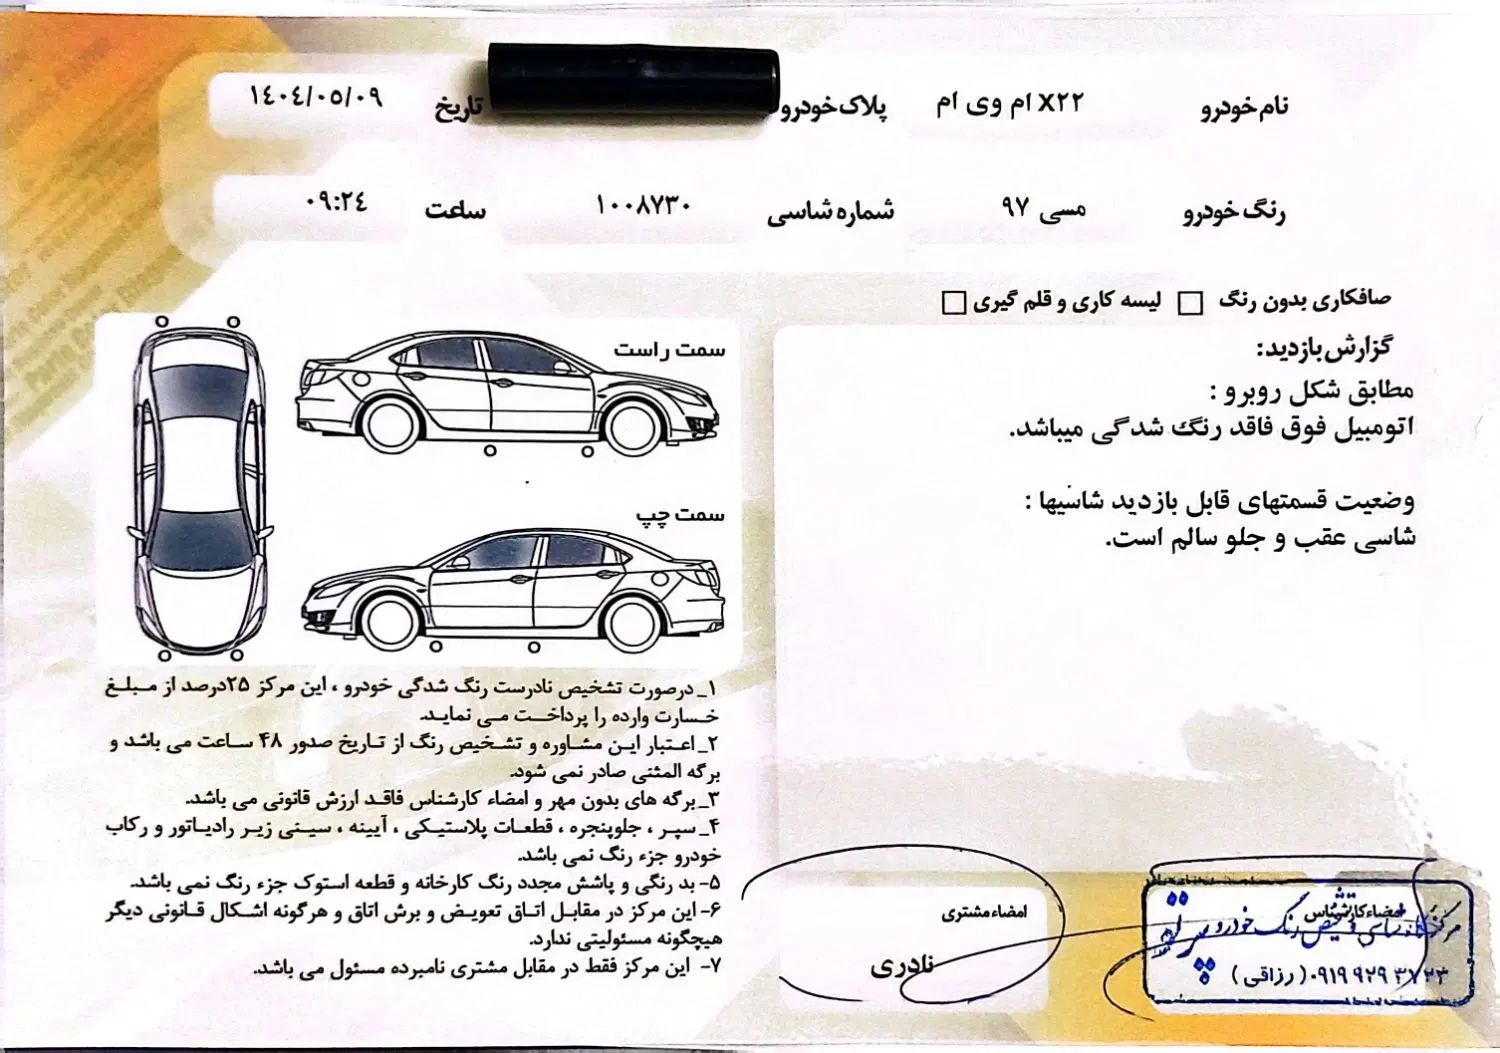 نام خودرو ام وی ام X۲۲ پلاک خودرو تاریخ ۱۴۰۴/۰۵/۰۹
رنگ خودرو مسی ۹۷ شماره شاسی ۱۰۰۸۷۳۰ ساعت ۰۹:۲۴
صافکاری بدون رنگ لیسه کاری و قلم گیری
گزارش بازدید:
مطابق شکل روبرو :
اتومبیل فوق فاقد رنگ شدگی میباشد.
وضعیت قسمتهای قابل بازدید شاسیها :
شاسی عقب و جلو سالم است.
سمت راست
سمت چپ
۱_درصورت تشخیص نادرست رنگ شدگی خودرو ، این مرکز ۲۵درصد از مبلغ
خسارت وارده را پرداخت می نماید.
۲_اعتبار این مشاوره و تشخیص رنگ از تاریخ صدور ۴۸ ساعت می باشد و
برگه المثنی صادر نمی شود.
۳_برگه های بدون مهر و امضاء کارشناس فاقد ارزش قانونی می باشد.
۴_سپر ، جلوپنجره ، قطعات پلاستیکی ، آیینه ، سینی زیر رادیاتور و رکاب
خودرو جزء رنگ نمی باشد.
۵- بد رنگی و پاشش مجدد رنگ کارخانه و قطعه استوک جزء رنگ نمی باشد.
۶- این مرکز در مقابل اتاق تعویض و برش اتاق و هرگونه اشکال قانونی دیگر
هیچگونه مسئولیتی ندارد.
۷- این مرکز فقط در مقابل مشتری نامبرده مسئول می باشد.
امضاء مشتری
نادری
امضاء کارشناس
مرکز کارشناسی و تشخیص رنگ خودرو
۰۹۱۹ ۹۲۹ ۳۷۲۳ (رزاقی)